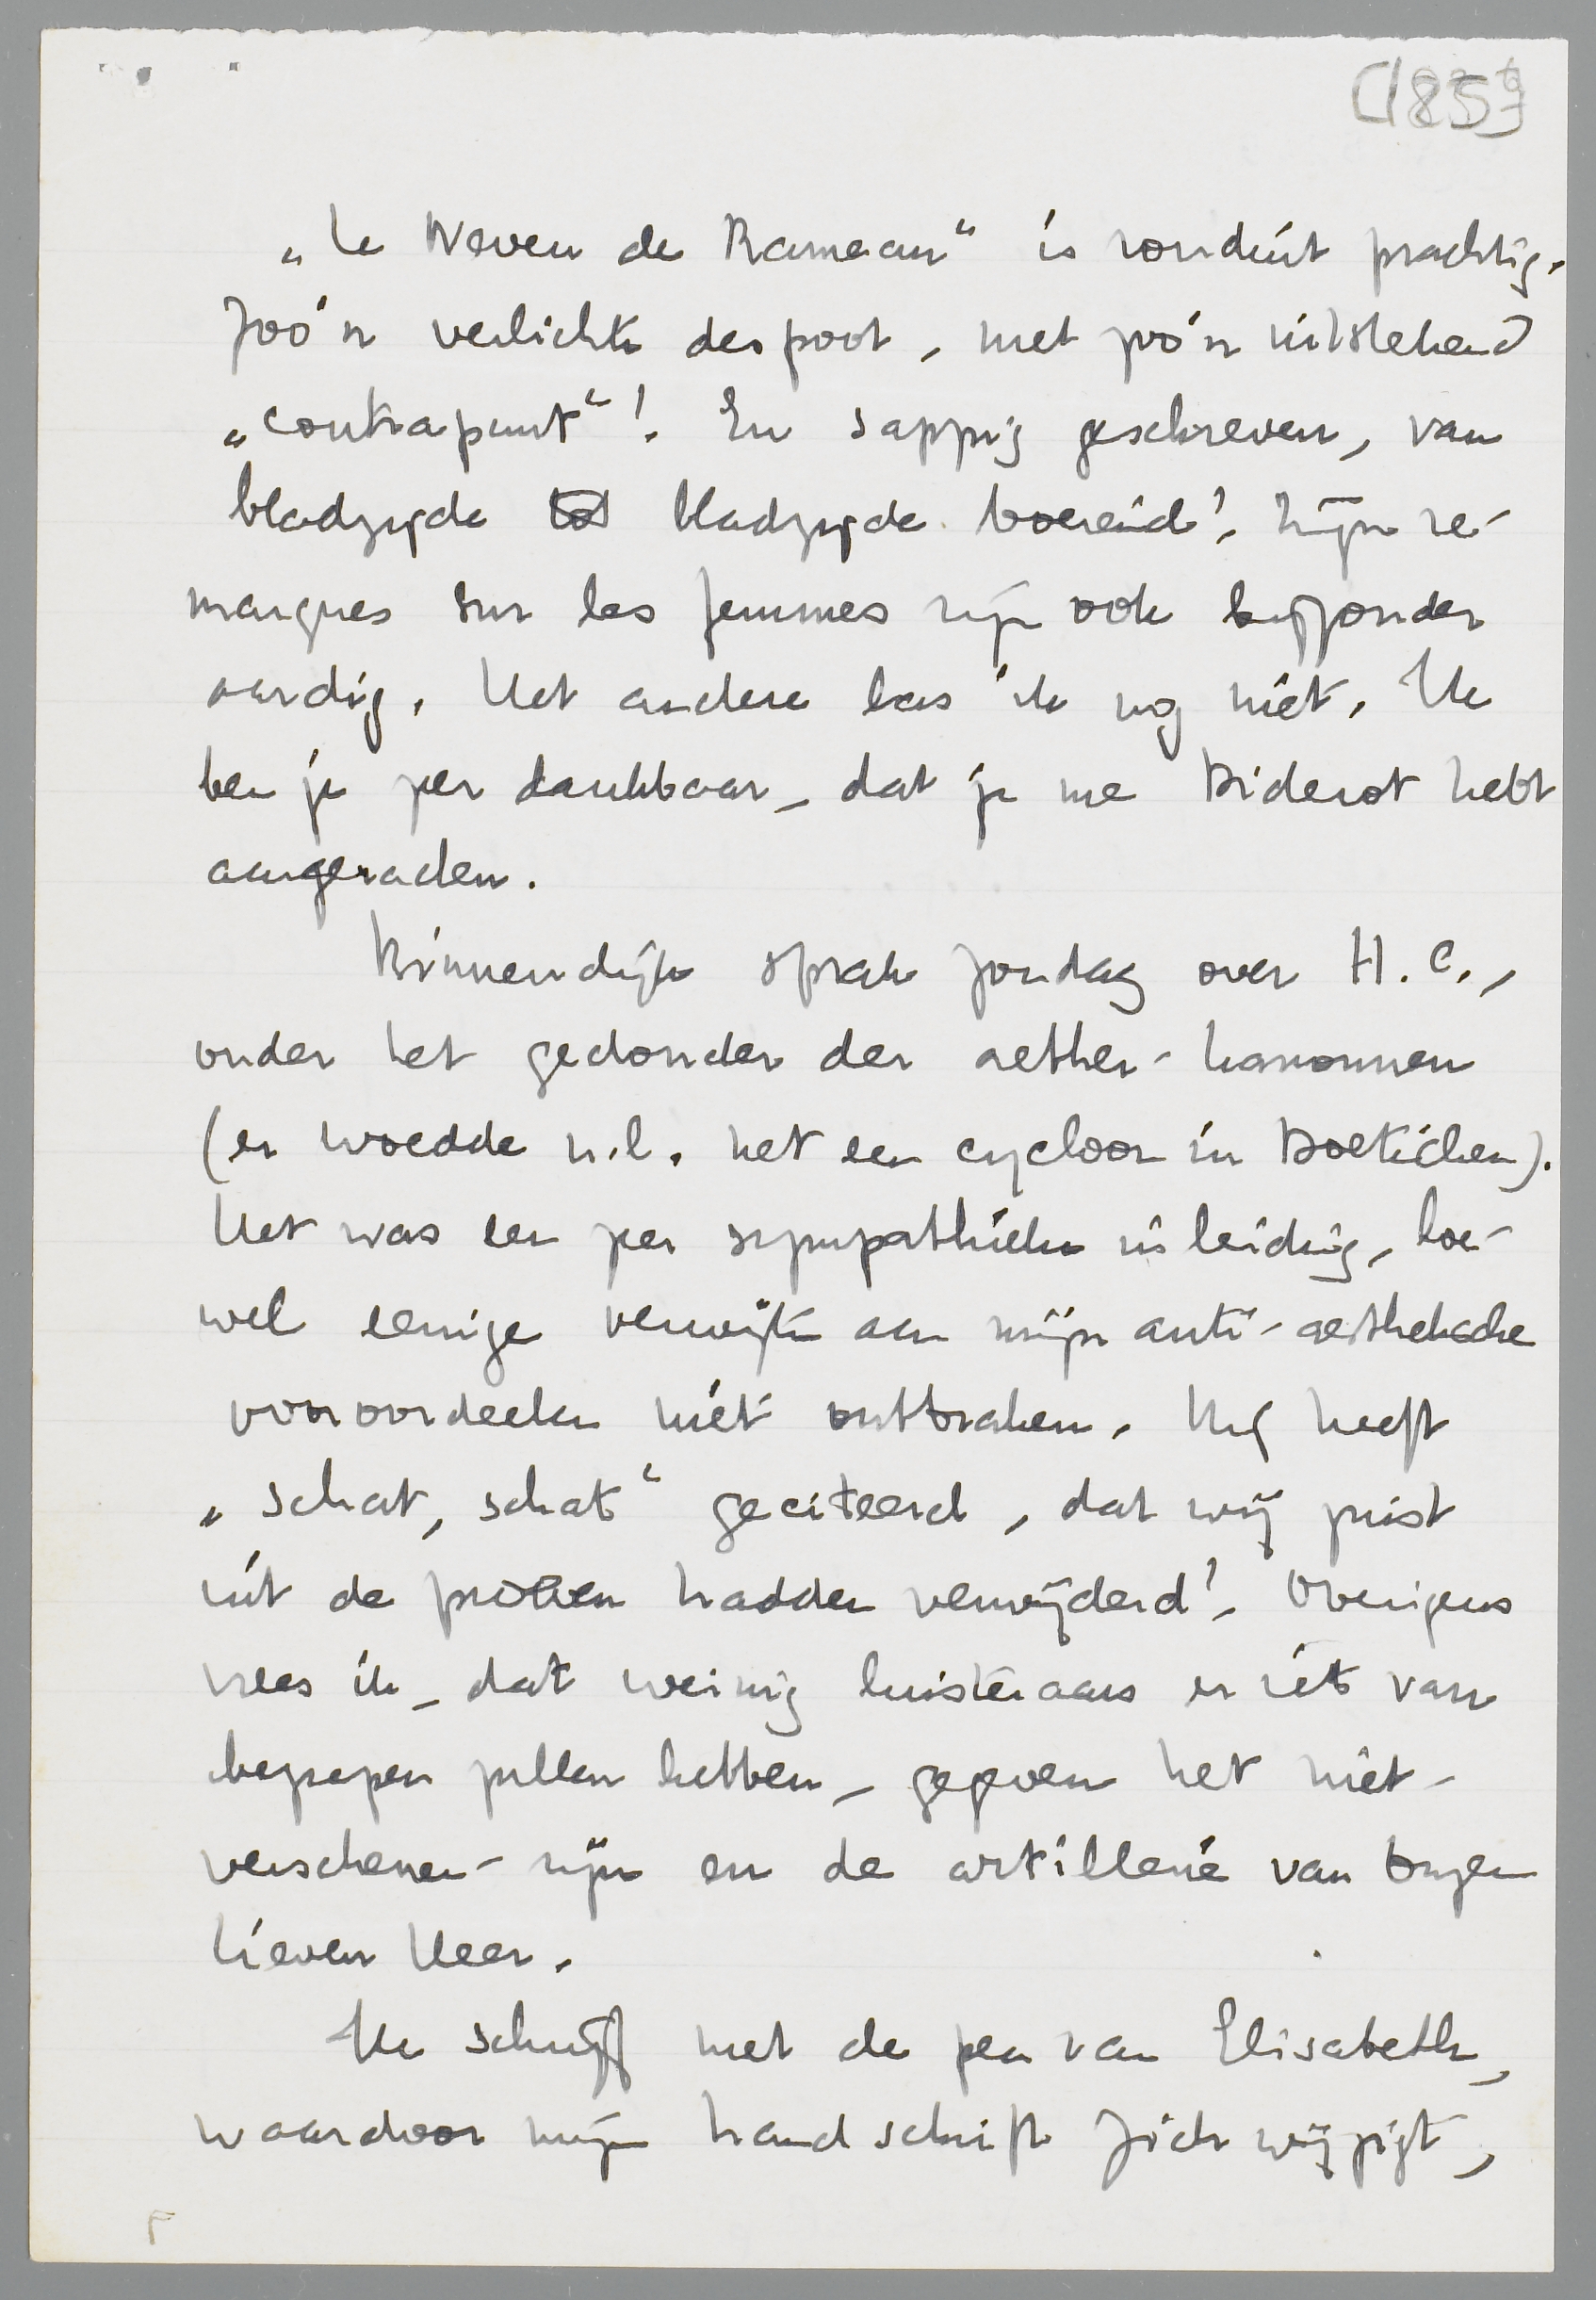 „Le Neveu de Rameau“ is ronduit prachtig.
Zoo'n verlichte despoot, met zoo'n uitstekend
„contrapunt“! En sappig geschreven, van
bladzijde tot bladzijde boeiend! Zijn re-
marques sur les femmes zijn ook bijzonder
aardig. Het andere las ik nog niet. Ik
ben je zeer dankbaar, dat je me Diderot hebt
aangeraden.
Binnendijk sprak zondag over H.C.,
onder het gedonder der aether-kanonnen
(er woedde n.l. net een cycloon in Doetichem).
Het was een zeer sympathieke inleiding, hoe-
wel eenige verwijten aan mijn anti-aesthetische
vooroordeelen niet ontbraken. Hij heeft
„schat, schat“ geciteerd, dat wij juist
uit de proeven hadden verwijderd! Overigens
vrees ik, dat weinig luisteraars er iets van
begrepen zullen hebben, gegeven het niet-
verschenen-zijn en de artillerie van onzen
lieven Heer.
Ik schrijf met de pen van Elisabeth,
waardoor mijn handschrift zich wijzigt,